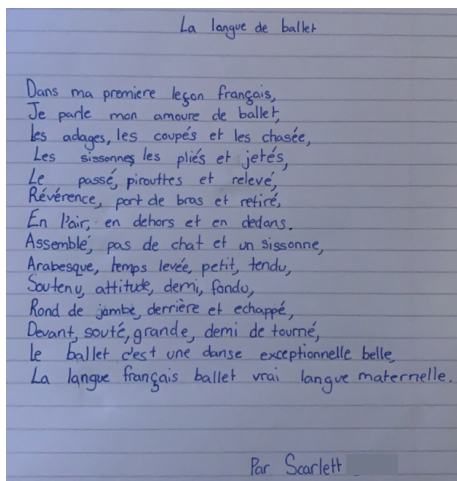 La langue de ballet
Dans ma premiere leçon français,
Je parle mon amoure de ballet,
les adages, les coupés et les chasée,
Les sissonnes les pliés et jetés,
Le passé, pirouttes et relevé,
Révérence, port de bras et retiré,
En l'air, en dehors et en dedans.
Assemblé, pas de chat et un sissonne,
Arabesque, temps levée, petit, tendu,
Soutenu, attitude, demi, fondu,
Rond de jambe, derrière et echappé,
Devant, souté, grande, demi de tourné,
le ballet c'est une danse exceptionnelle belle,
La langue français ballet vrai langue maternelle.
Par Scarlett